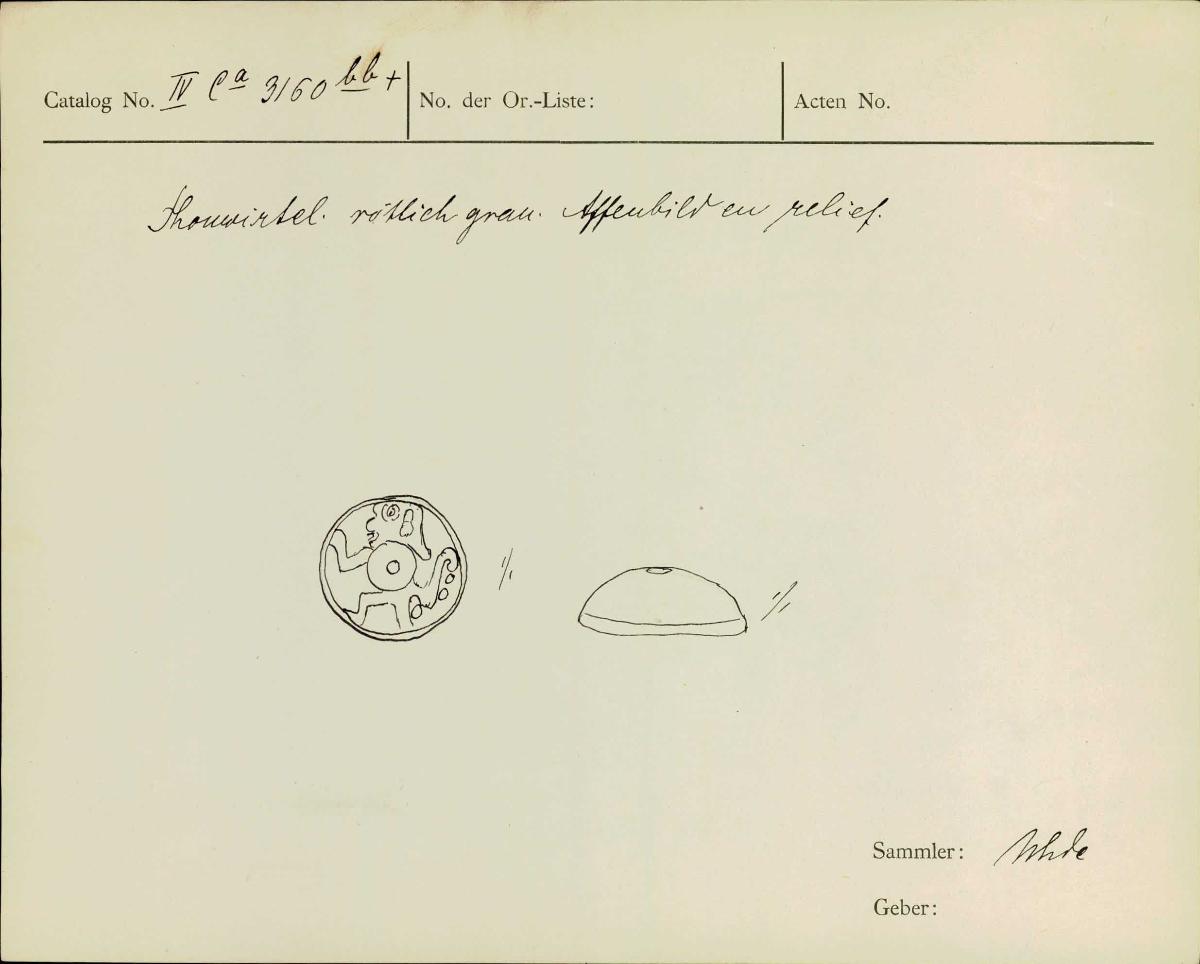 Catalog No. IV Ca 3160 bb + No. der Or.-Liste: Acten No.
Thonwirtel. rötlich grau. Affenbild en relief.
1/1 1/1
Sammler: Uhde
Geber: